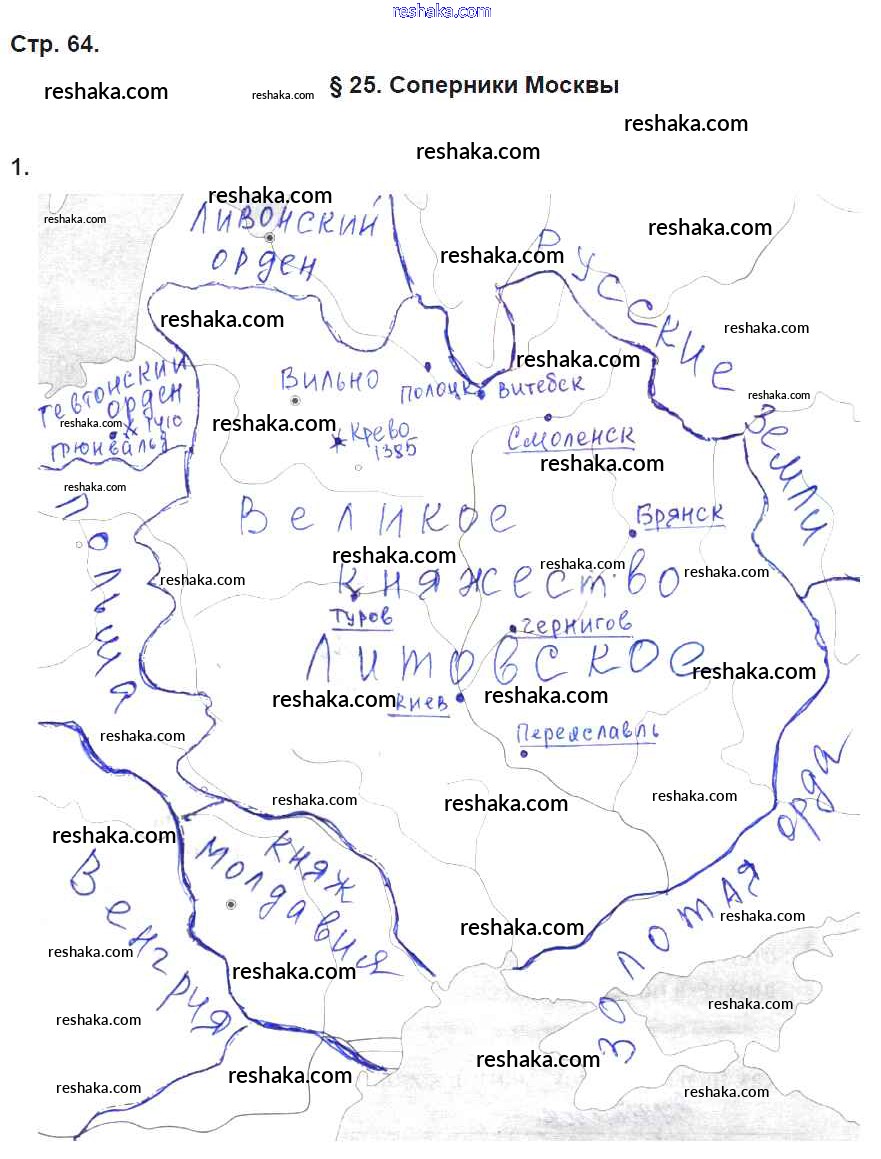 reshaka.com
Стр. 64.
reshaka.com
reshaka.com
§ 25. Соперники Москвы
reshaka.com
reshaka.com
1.
reshaka.com
reshaka.com
Ливонский
орден
reshaka.com
reshaka.com
Русские
земли
reshaka.com
reshaka.com
reshaka.com
Тевтонский
орден
reshaka.com
1410
Грюнвальд
Вильно
Полоцк
Витебск
reshaka.com
reshaka.com
Крево
1385
Смоленск
reshaka.com
reshaka.com
Польша
Великое
Брянск
reshaka.com
reshaka.com
reshaka.com
reshaka.com
княжество
Туров
Чернигов
Литовское
reshaka.com
reshaka.com
reshaka.com
Киев
Переяславль
reshaka.com
reshaka.com
reshaka.com
reshaka.com
reshaka.com
княж
Молдавия
Венгрия
Золотая орда
reshaka.com
reshaka.com
reshaka.com
reshaka.com
reshaka.com
reshaka.com
reshaka.com
reshaka.com
reshaka.com
reshaka.com